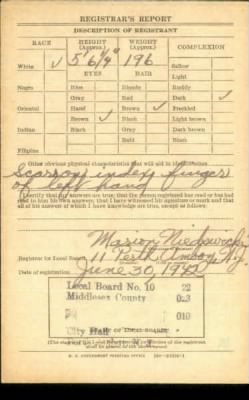 REGISTRAR'S REPORT
DESCRIPTION OF REGISTRANT
RACE HEIGHT (Approx.) WEIGHT (Approx.) COMPLEXION
White ✓ 5' 6 1/4" 196 Sallow
EYES HAIR Light
Negro Blue Blonde Ruddy
Gray Red Dark ✓
Oriental Hazel Brown ✓ Freckled
Brown ✓ Black Light brown
Indian Black Gray Dark brown
Bald Black
Filipino
Other obvious physical characteristics that will aid in identification
Scar on index finger
of left hand
I certify that my answers are true; that the person registered has read or has had
read to him his own answers; that I have witnessed his signature or mark and that
all of his answers of which I have knowledge are true, except as follows:
Marion
Registrar for Local Board 11 Perth Amboy N.J.
Date of registration June 30, 1942
Local Board No. 10 22
Middlesex County 023
010
City Hall
N. J.
(The stamp of the Local Board
U. S. GOVERNMENT PRINTING OFFICE